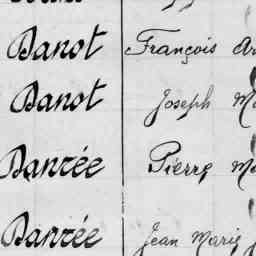 Danot François
Danot Joseph
Danrée Pierre
Danrée Jean Marie